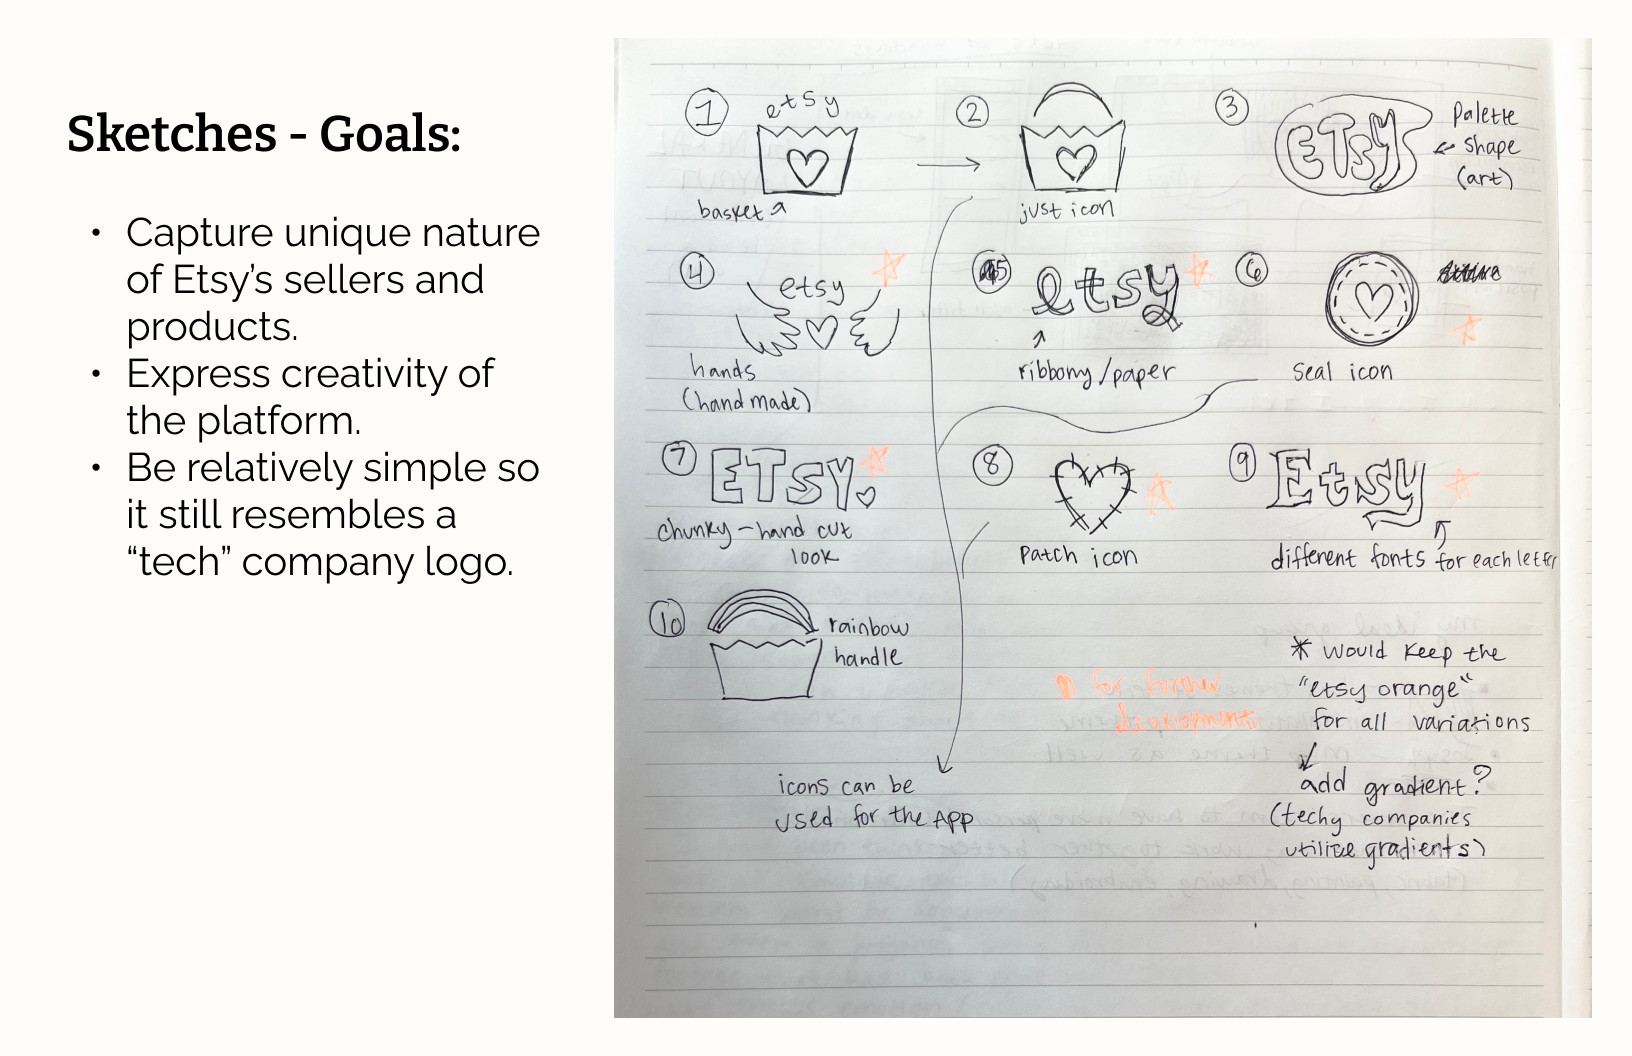 Sketches - Goals:
• Capture unique nature
of Etsy’s sellers and
products.
• Express creativity of
the platform.
• Be relatively simple so
it still resembles a
“tech” company logo.
1
etsy
basket
2
just icon
3
ETSY
Palette
shape
(art)
4
etsy
hands
(hand made)
5
etsy
ribbony/paper
6
seal icon
7
ETSY
chunky - hand cut
look
8
patch icon
9
Etsy
different fonts for each letter
10
rainbow
handle
for further
development
* would keep the
"etsy orange"
for all variations
add gradient?
(techy companies
utilize gradients)
icons can be
used for the App